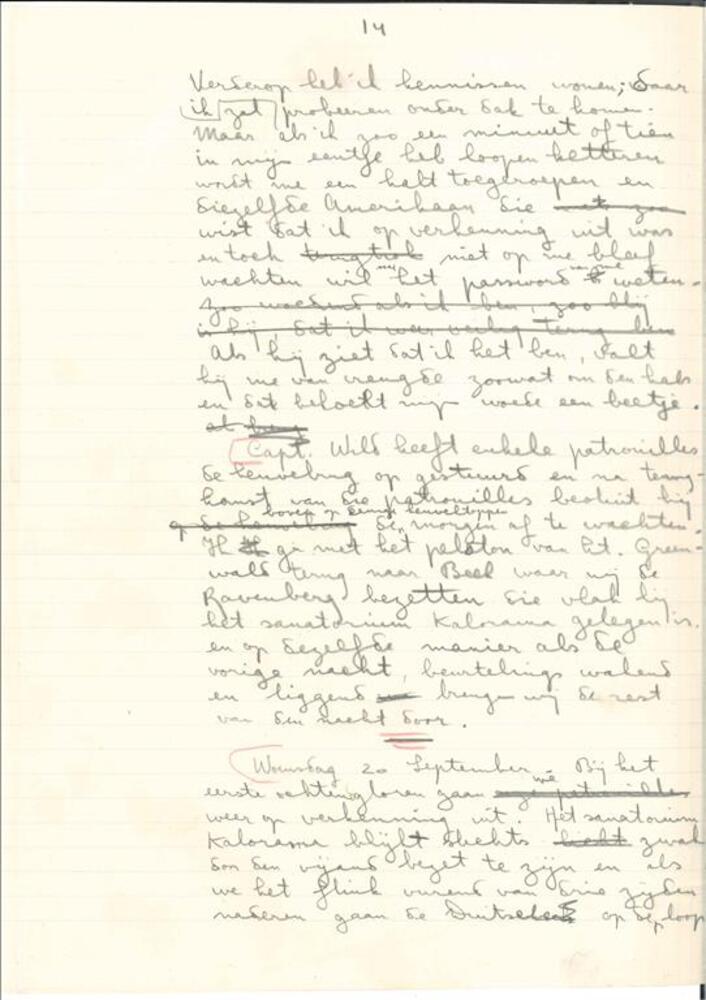 14
Verderop heb ik kennissen wonen; daar
ik zal probeeren onder dak te komen.
Maar als ik zoo een minuut of tien
in mijn eentje heb loopen ketteren
wordt me een halt toegeroepen en
diezelfde Amerikaan die niets zoo
wist dat ik op verkenning uit was
en toch terugtrok niet op me bleef
wachten wil nu het password van me weten.
zoo woedend als ik ben, zoo blij
is hij, dat ik weer veilig terug ben
Als hij ziet dat ik het ben, valt
hij me van vreugde zoowat om den hals
en dat bekoelt mijn woede een beetje.
Capt. Wild heeft enkele patrouilles
de heuvelrug op gestuurd en na terug-
komst van die patrouilles besluit hij
boven op eenige heuveltoppen
op de heuvelrug de morgen af te wachten.
Ik ga met het peloton van Lt. Green-
wald terug naar Beek waar wij de
Ravenberg bezetten die vlak bij
het sanatorium Kalorama gelegen is.
en op dezelfde manier als de
vorige nacht, beurtelings wakend
en liggend brengen wij de rest
van den nacht door.
Woensdag 20 September. Bij het
eerste ochtendgloren gaan we patrouilles
weer op verkenning uit. Het sanatorium
Kalorama blijkt slechts licht zwak
door den vijand bezet te zijn en als
we het flink vurend van drie zijden
naderen gaan de Duitschers op de loop